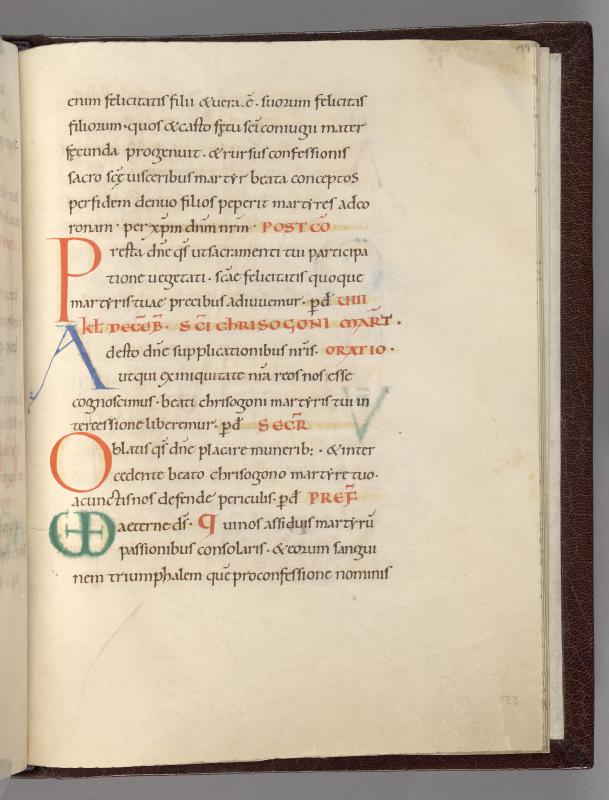 enim felicitatis filii & vera · ē · suorum felicitas
filiorum · quos & casto fętu sc̄i coniugii mater
fęcunda progenuit · & rursus confessionis
sacro scę visceribus martyr beata conceptos
perfidem denuo filios peperit martyres adco
ronam · per xp̄m dnm nrm · POST CŌ
Presta dn̄e qs ut sacramenti tui participa
tione vegetati · scāe felicitatis quoque
martyris tuae precibus adiuvemur · p̄d VIIII
kł DECĒB · S C̄I CHRISOGONI MART̄ ·
Adesto dn̄e supplicationibus nr̄is · ORATIO ·
ut qui ex iniquitate nr̄a reos nos esse
cognoscimus · beati chrisogoni martyris tui in
tercessione liberemur · p̄d SECR̄
Oblatis qs̄ dn̄e placare munerib: · & inter
cedente beato chrisogono martyre tuo ·
a cunctis nos defende periculis · p̄d PREF̄
VD aeterne ds̄ · q̄ui nos assiduis martyrū
passionibus consolaris · & eorum sangui
nem triumphalem quē pro confessione nominis